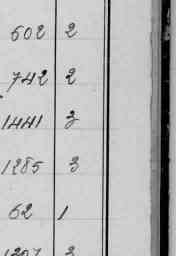 602 2
742 2
1441 3
1285 3
62 1
1207 3